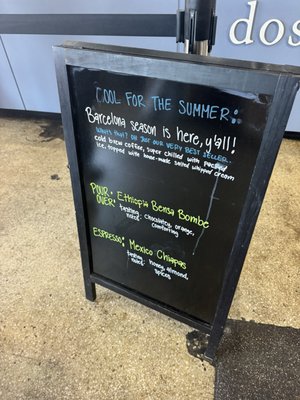 dos
COOL FOR THE SUMMER:
Barcelona season is here, y'all!
WHAT'S THAT? OH JUST OUR VERY BEST SELLER.
cold brew coffee, super chilled with
ice, topped with house-made salted whipped cream
POUR OVER: Ethiopia Bensa Bombe
tasting notes: chocolatey, orange,
comforting
ESPRESSO: Mexico Chiapas
tasting notes: honey, almond,
spices